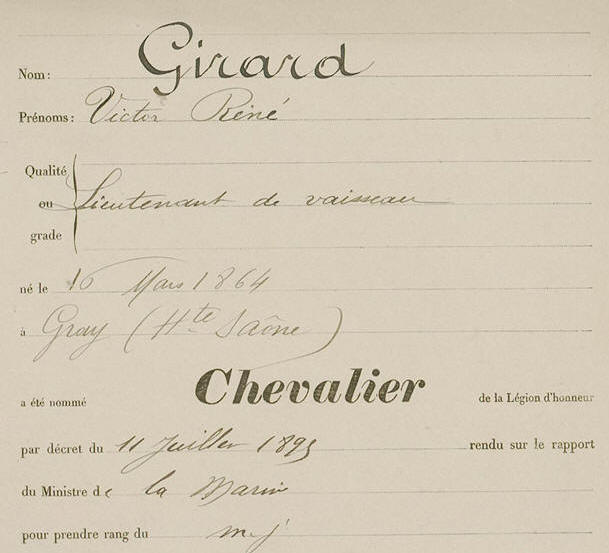 Nom: Girard
Prénoms: Victor René
Qualité
ou Lieutenant de vaisseau
grade
né le 16 Mars 1864
à Gray (Hte Saône)
a été nommé Chevalier de la Légion d'honneur
par décret du 11 Juillet 1895 rendu sur le rapport
du Ministre de la Marine
pour prendre rang du m. j.